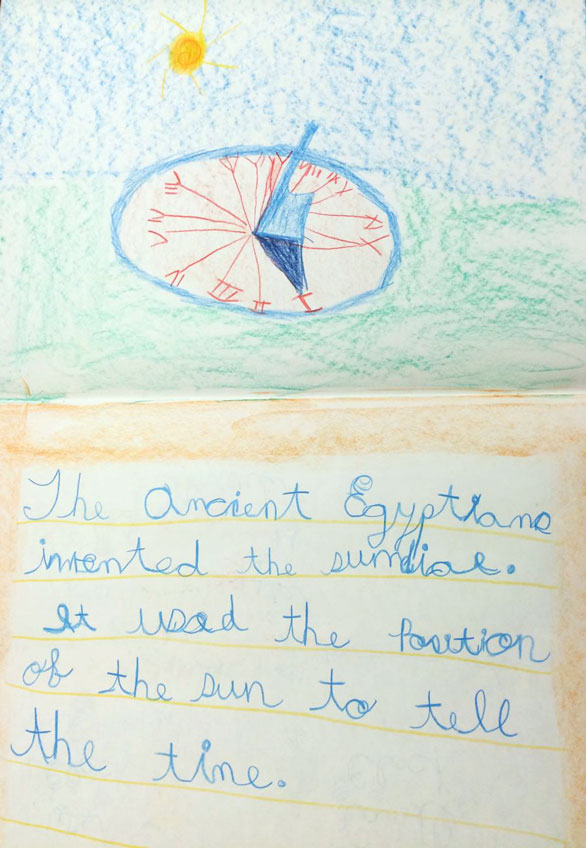 The Ancient Egyptians
invented the sundial.
It used the position
of the sun to tell
the tine.